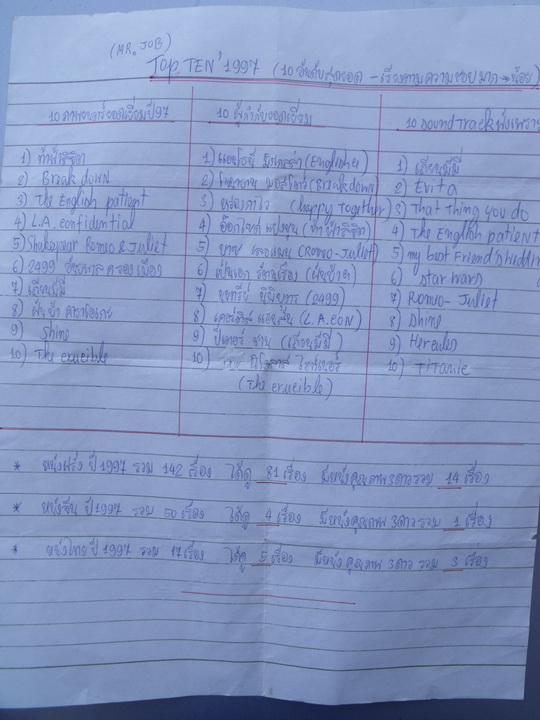 (MR. JOB)
TOP TEN' 1997 (10 อันดับสุดยอด - เรียงตามความชอบมาก → น้อย)
10 ภาพยนตร์ยอดเยี่ยมปี 97
1) ท้า
2) Breakdown
3) The English patient
4) L.A. confidential
5) Shakespear Romeo & Juliet
6) 2499 อันธพาลครองเมือง
7) เถียนมีมี่
8)
9) Shine
10) The crucible
10 ผู้กำกับยอดเยี่ยม
1) แอนโธนี มิงเกลล่า (English)
2) (Breakdown)
3) หว่องกาไว (happy Together)
4)
5) (Romeo-Juliet)
6)
7) นนทรีย์ นิมิบุตร (2499)
8) เคอร์ติส แฮนสัน (L.A. CON)
9) ปีเตอร์ ชาน (เถียนมีมี่)
10) ไฮท์เนอร์
(The crucible)
10 Soundtrack
1) เถียนมีมี่
2) Evita
3) That Thing you do
4) The English patient
5) my best Friend's
6) star wars
7) Romeo - Juliet
8) Shine
9) Hercules
10) Titanic
* หนังฝรั่ง ปี 1997 รวม 142 เรื่อง ได้ดู 81 เรื่อง มีหนังคุณภาพ 3 ดาว รวม 14 เรื่อง
* หนังจีน ปี 1997 รวม 50 เรื่อง ได้ดู 4 เรื่อง มีหนังคุณภาพ 3 ดาว รวม 1 เรื่อง
* หนังไทย ปี 1997 รวม 17 เรื่อง ได้ดู 5 เรื่อง มีหนังคุณภาพ 3 ดาว รวม 3 เรื่อง